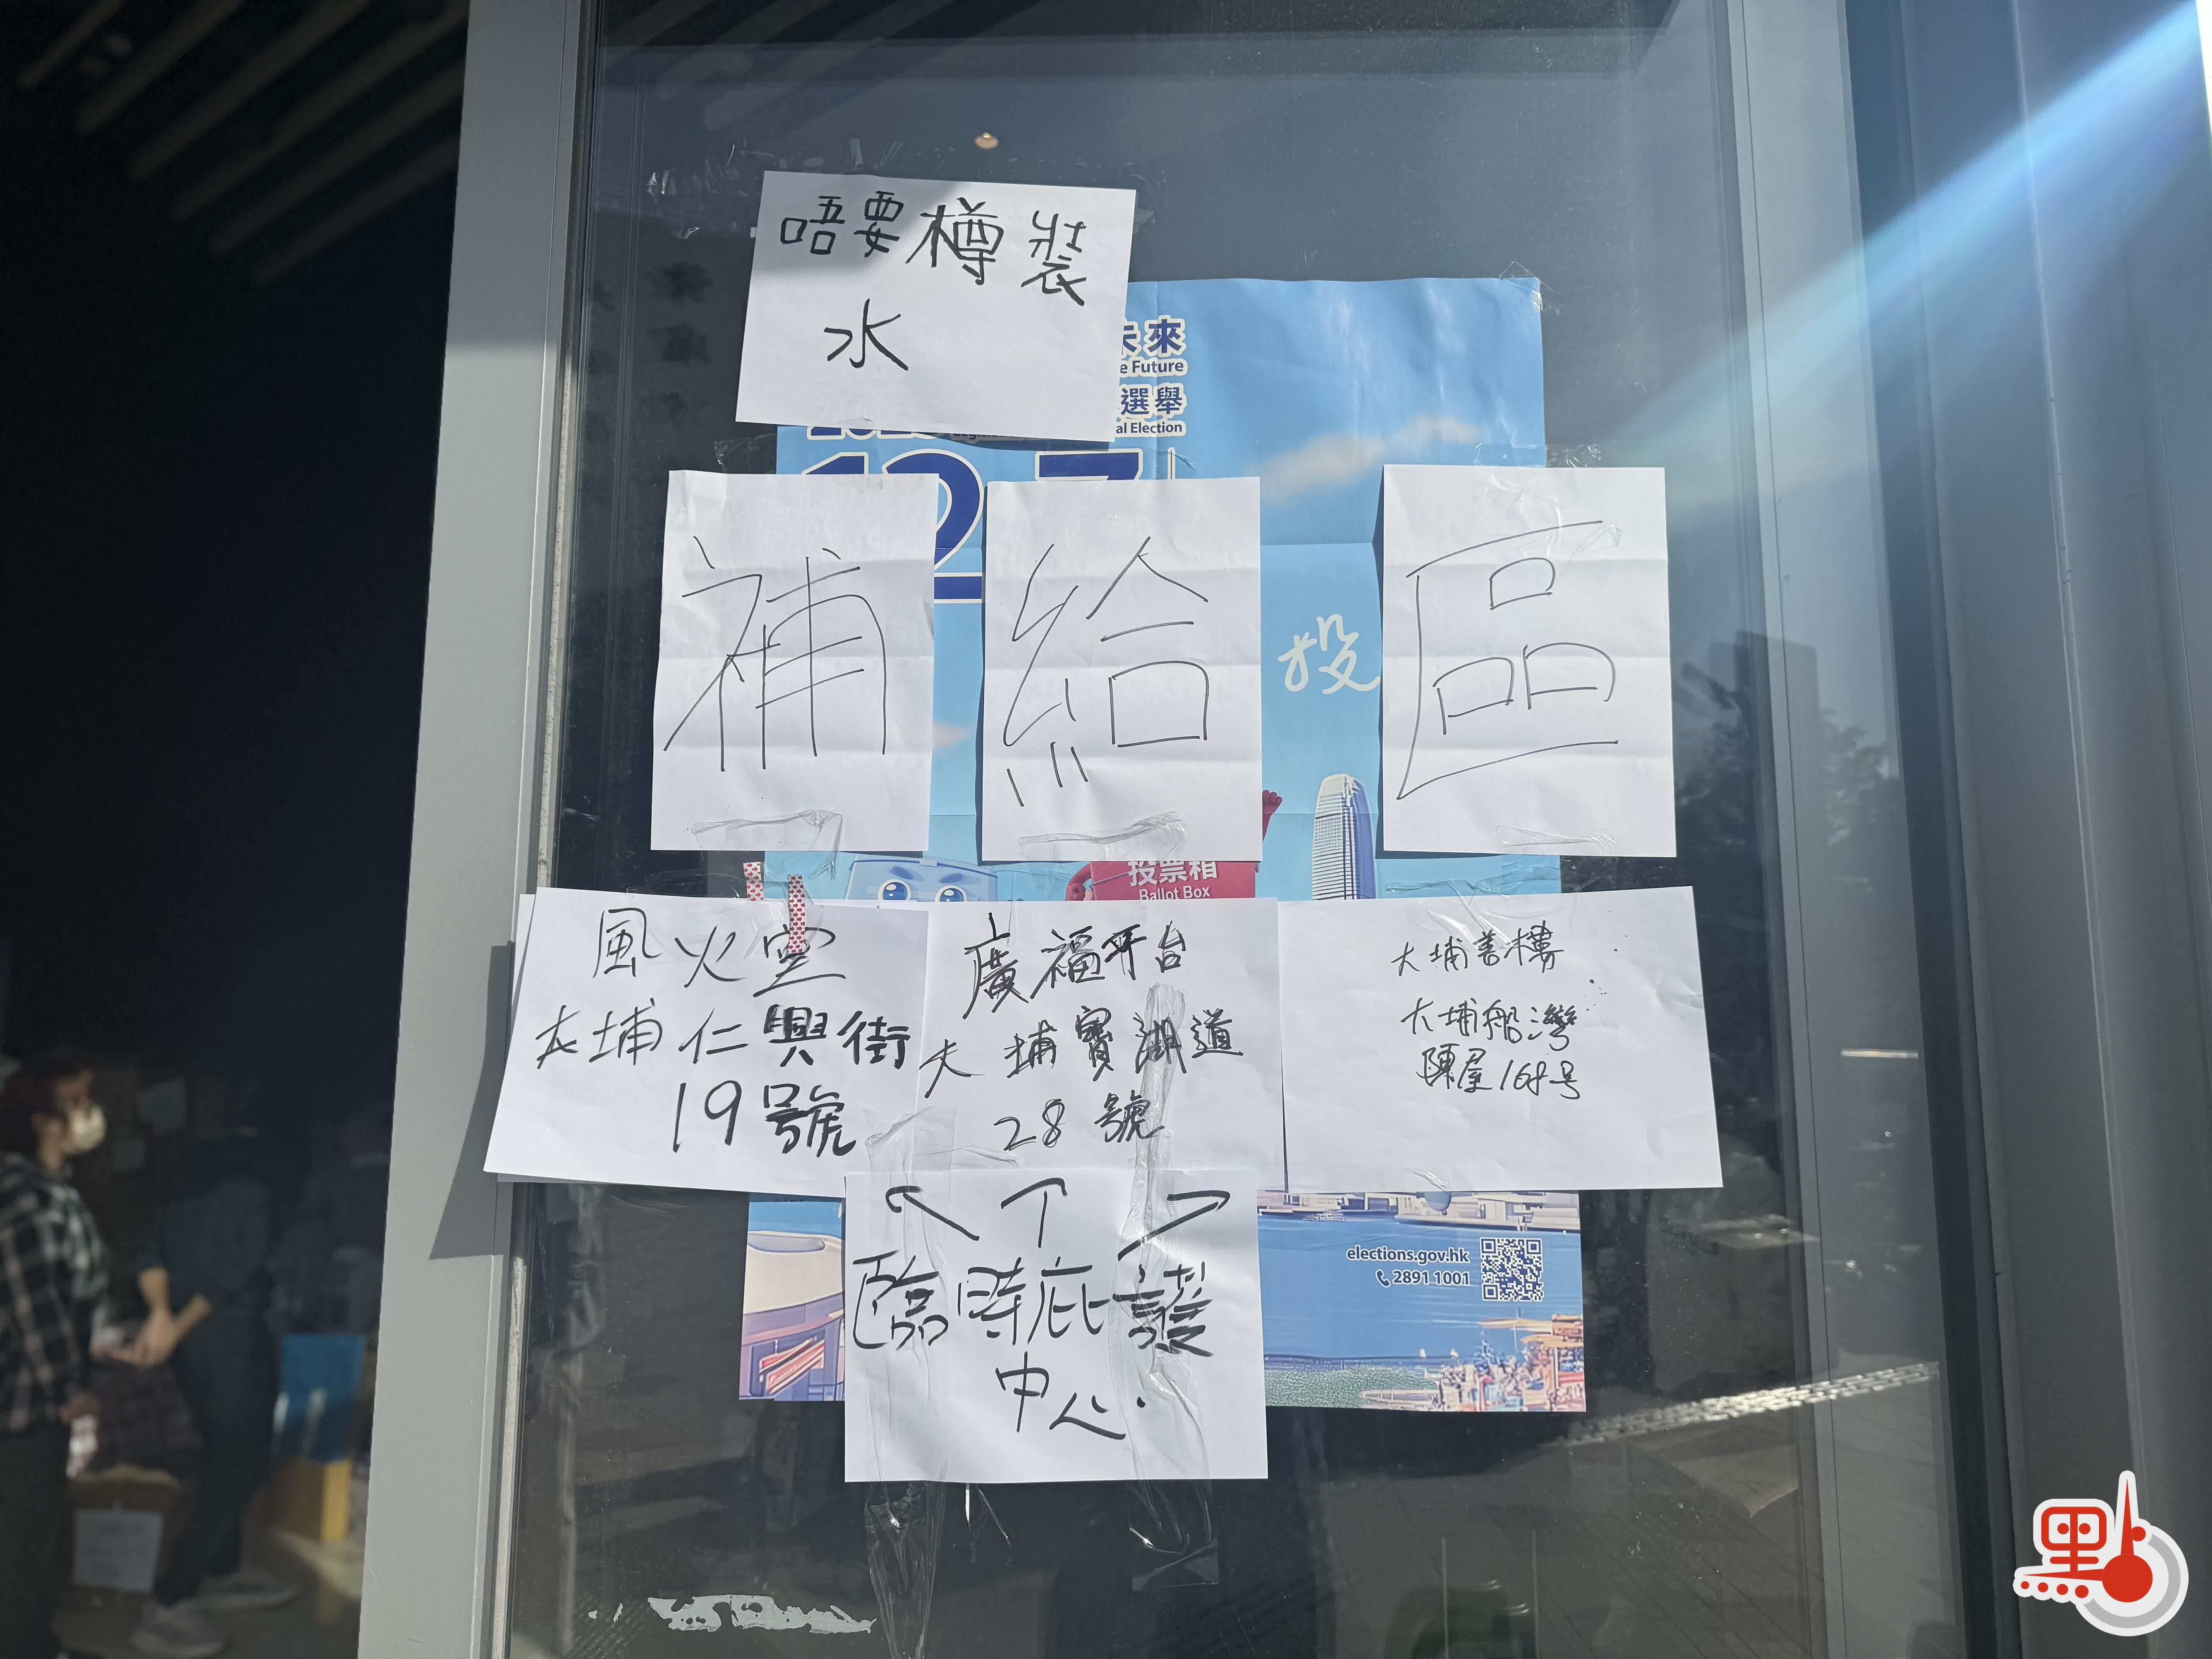 唔要樽裝
水
未來
e Future
選舉
al Election
12 7
補給區
投
投票箱
Ballot Box
風火空
大埔仁興街
19號
廣福平台
大埔寶湖道
28號
大埔善樓
大埔船灣
陳屋168号
臨時庇護
中心.
elections.gov.hk
2891 1001
點